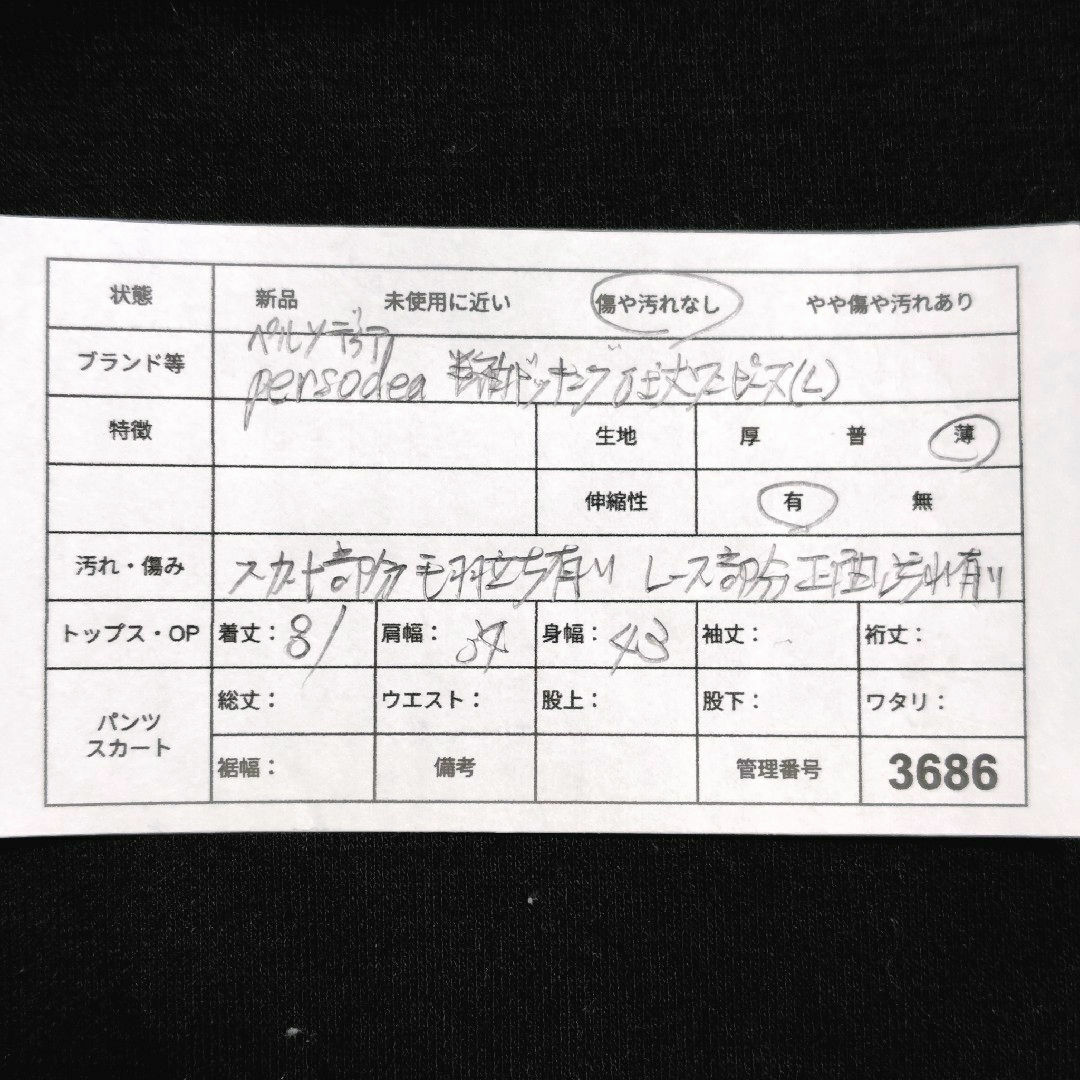 状態 新品 未使用に近い 傷や汚れなし やや傷や汚れあり
ペルソデア
ブランド等 persodea ドッキング 丈ワンピース(L)
特徴 生地 厚 普 薄
伸縮性 有 無
汚れ・傷み スカート部分毛羽立ち有り レース部分正面汚れ有り
トップス・OP 着丈:81 肩幅:34 身幅:43 袖丈: 裄丈:
パンツ スカート 総丈: ウエスト: 股上: 股下: ワタリ:
裾幅: 備考 管理番号 3686